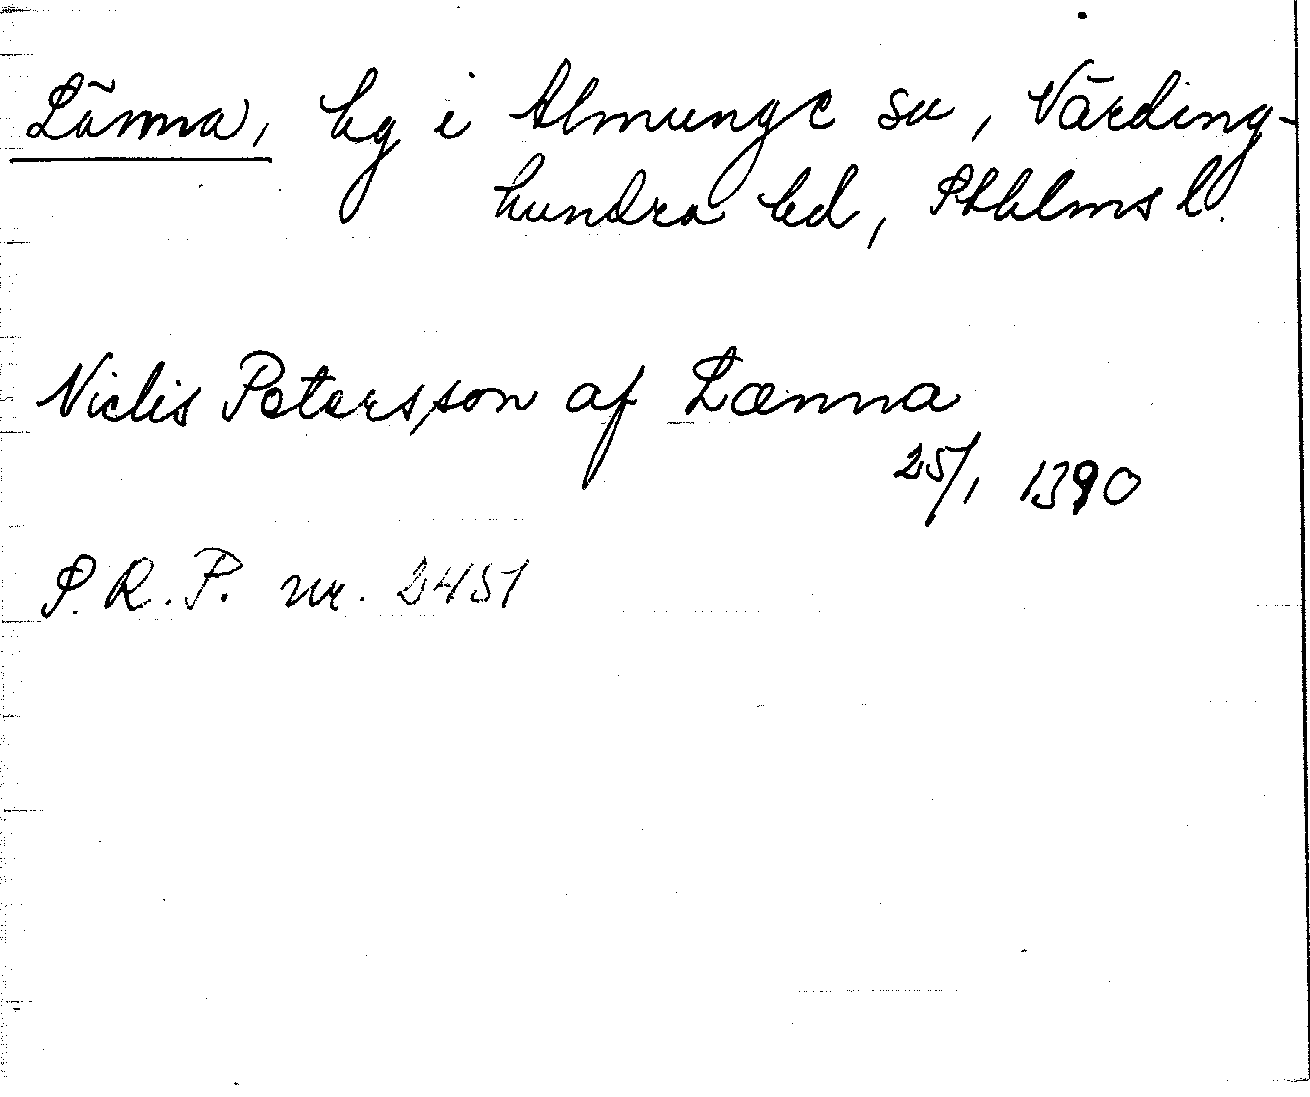 Länna, by i Almunge sn, Närding-
hundra hd, Sthlms l.
Niclis Petersson af Lænna
25/1 1390
S.R.P. nr. 2451